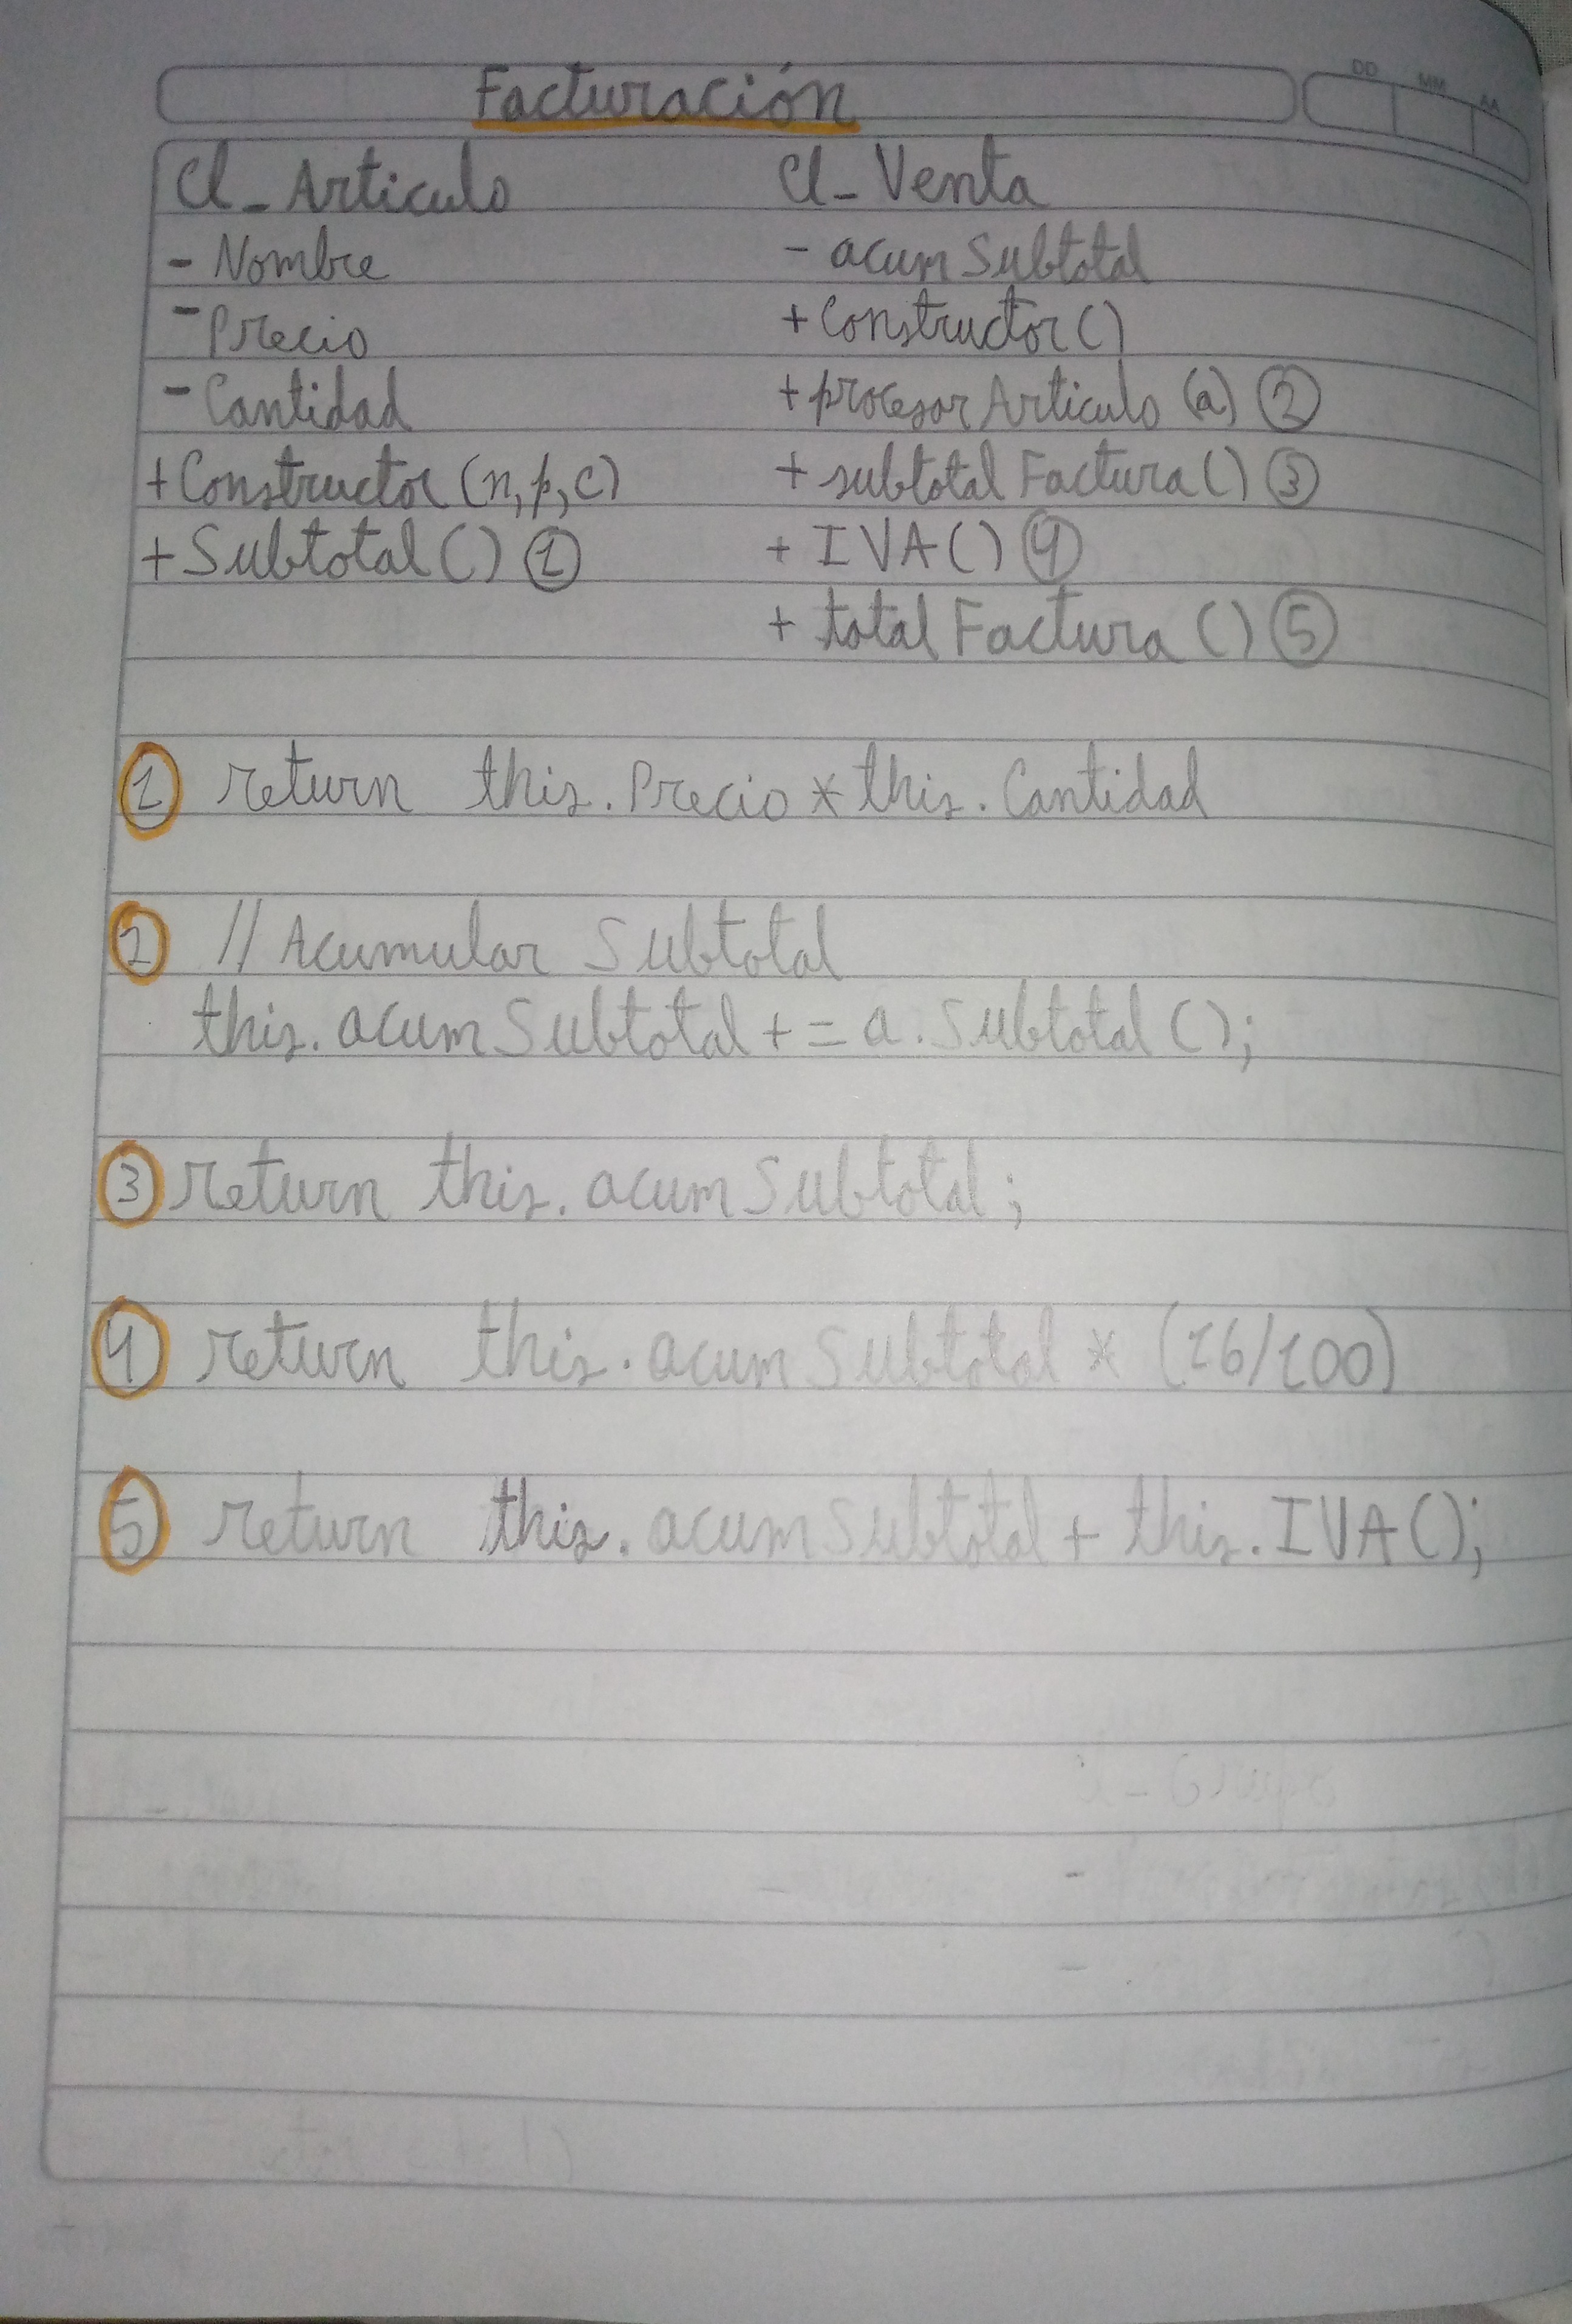 Facturación
DD MM AA
Cl_Articulo
- Nombre
- Precio
- Cantidad
+ Constructor (n, p, c)
+ Subtotal () ①
Cl_Venta
- acumSubtotal
+ Constructor ()
+ procesarArticulo (a) ②
+ subtotalFactura () ③
+ IVA () ④
+ totalFactura () ⑤
① return this.Precio * this.Cantidad
② // Acumular Subtotal
this.acumSubtotal += a.Subtotal ();
③ return this.acumSubtotal;
④ return this.acumSubtotal * (16/100)
⑤ return this.acumSubtotal + this.IVA ();